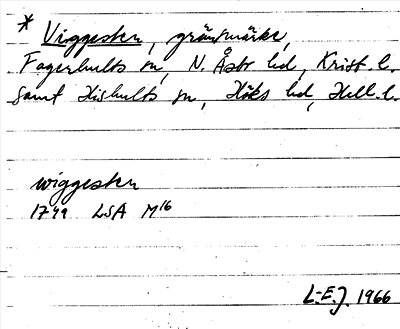 * Viggesten, gränsmärke,
Fagerhults sn, N. Åsbo hd, Krist. l.
samt Hishults sn, Höks hd, Hall. l.
wiggesten
1749 LSA M16
L-E.J. 1966